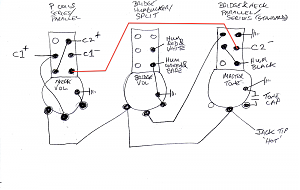 P COILS
SERIES/
PARALLEL
BRIDGE
HUMBUCKER/
SPLIT
BRIDGE & NECK
PARALLEL/
SERIES (STANDARD)
C2+
C1+
C1-
HUM
RED &
WHITE
HUM
GREEN &
BARE
C2-
HUM
BLACK
NECK
VOL
BRIDGE
VOL
MASTER
TONE
TONE
CAP
JACK TIP
'HOT'